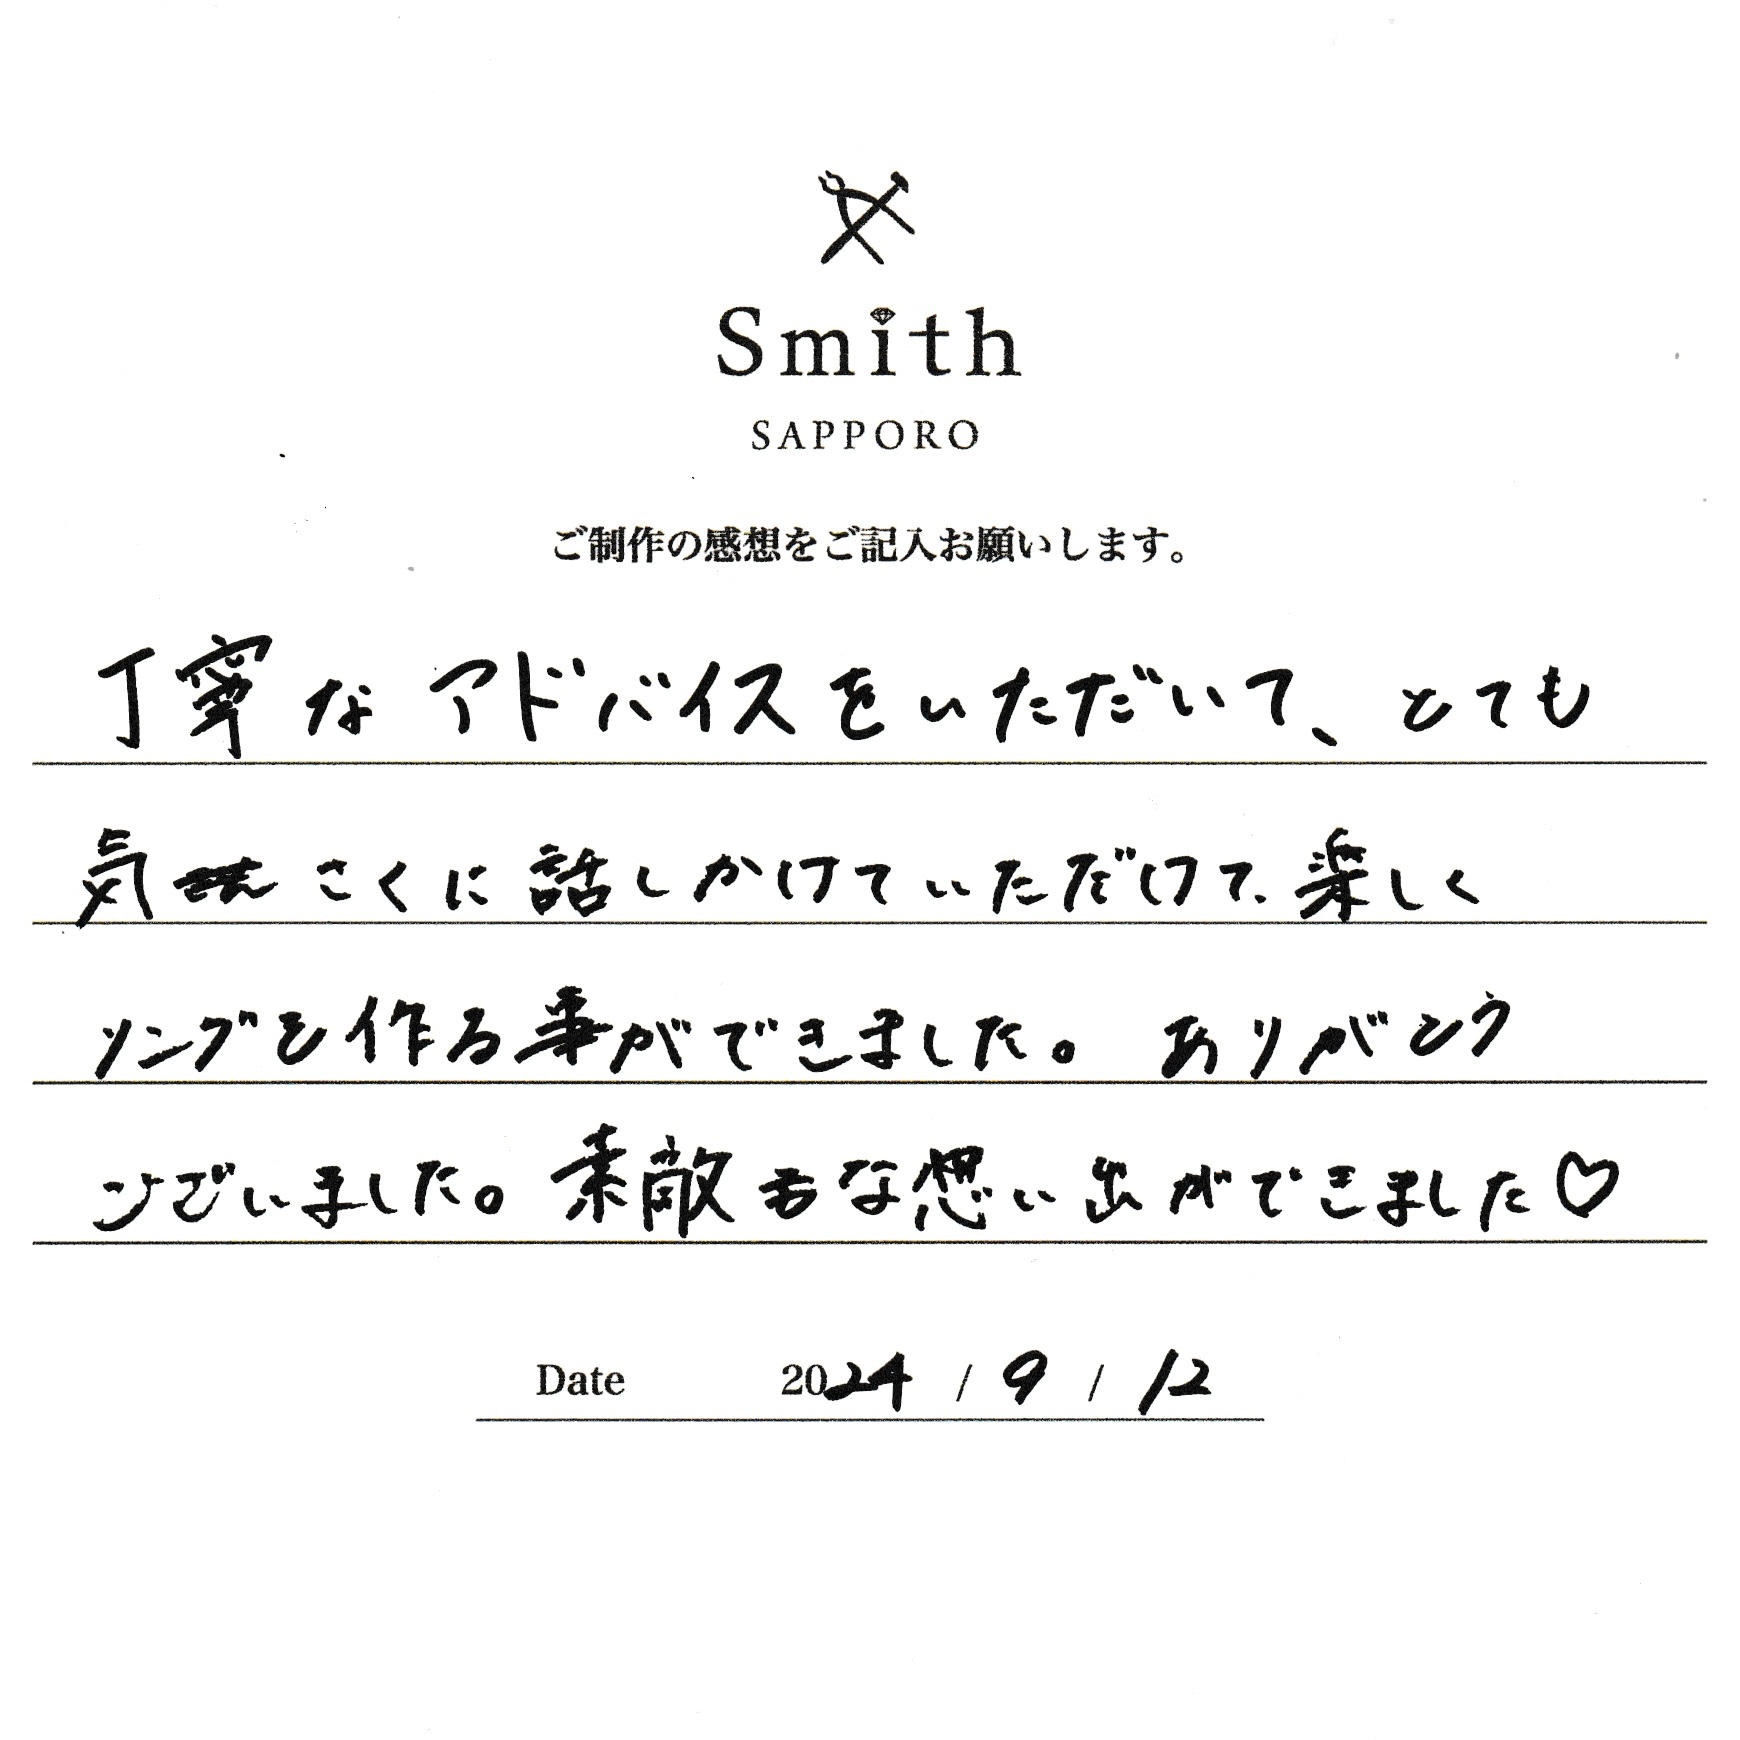 Smith
SAPPORO
ご制作の感想をご記入お願いします。
丁寧なアドバイスをいただいて、とても
気さくに話しかけていただけて、楽しく
リングを作る事ができました。ありがとう
ございました。素敵な想い出ができました♡
Date 2024 / 9 / 12